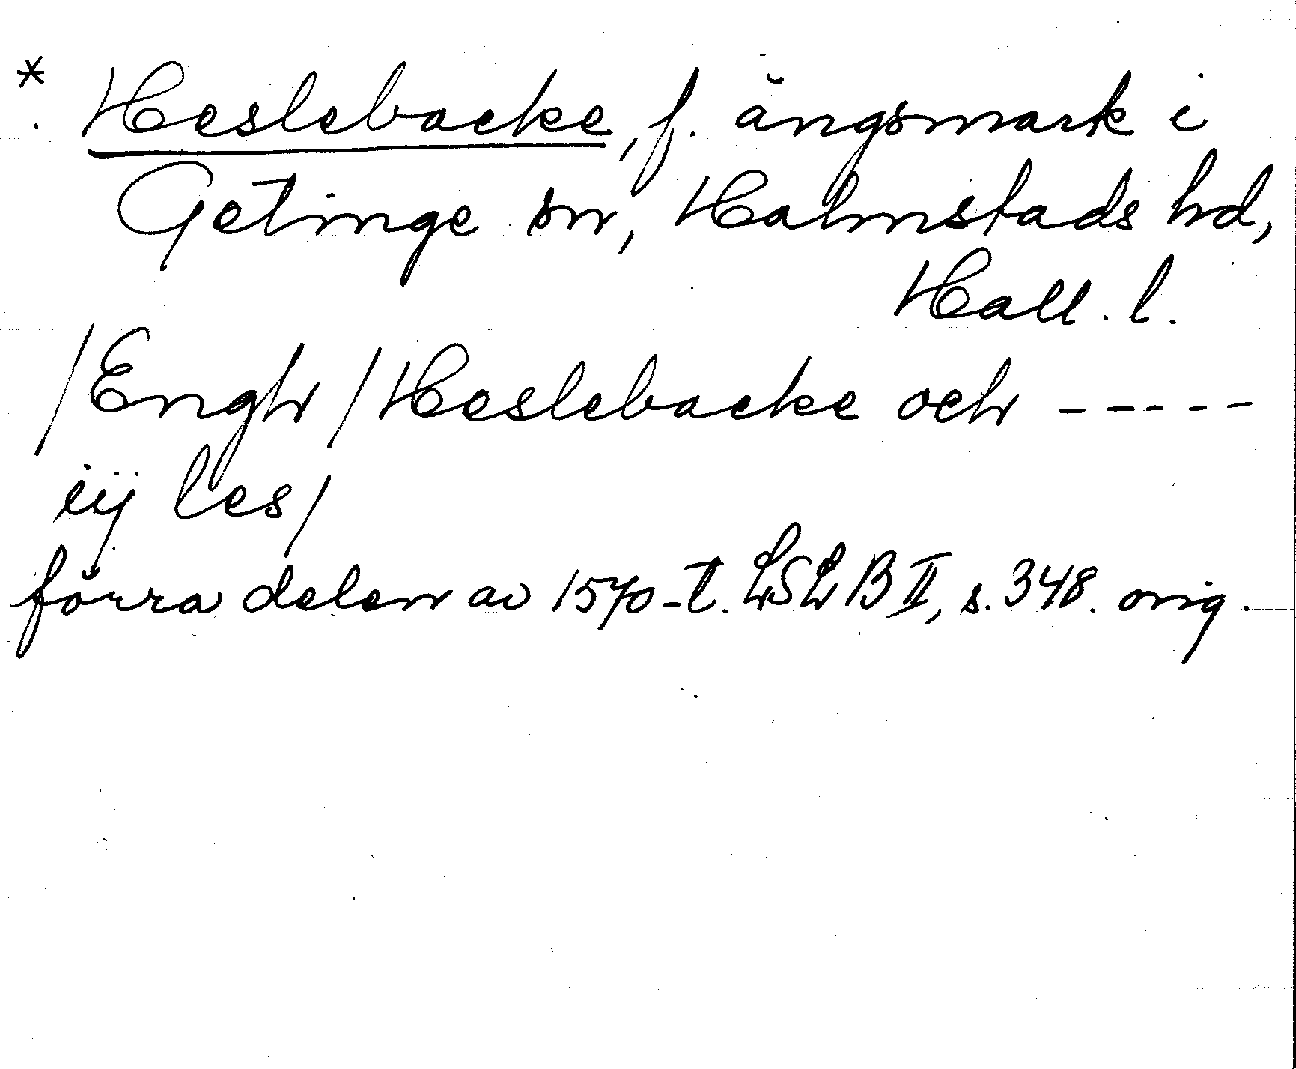 * Heslebacke, f. ängsmark i
Getinge sn, Halmstads hd,
Hall. l.
/Engh/Heslebacke och -----
iij les/
förra delen av 1570-t. LSLB II, s. 348. orig.